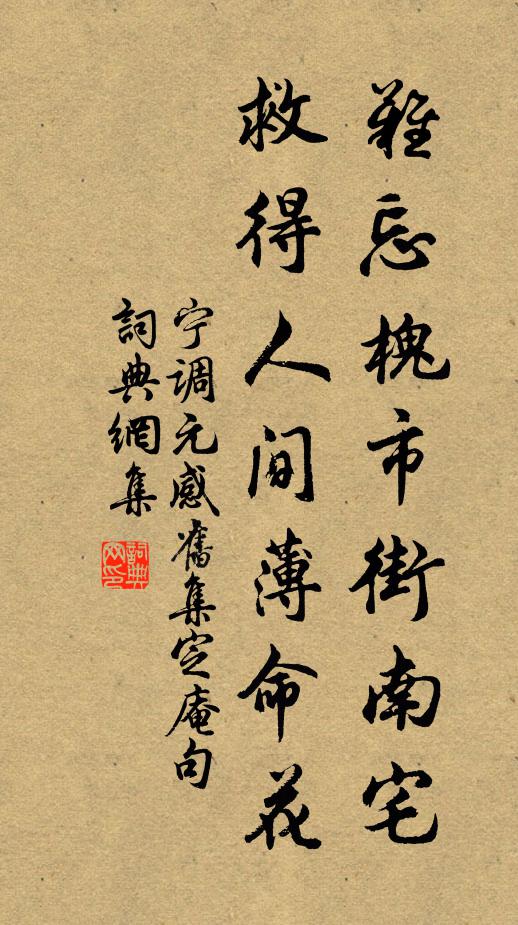 難忘槐市街南宅
救得人間薄命花
宁调元感舊集定庵句
詞典網集
詞典網印